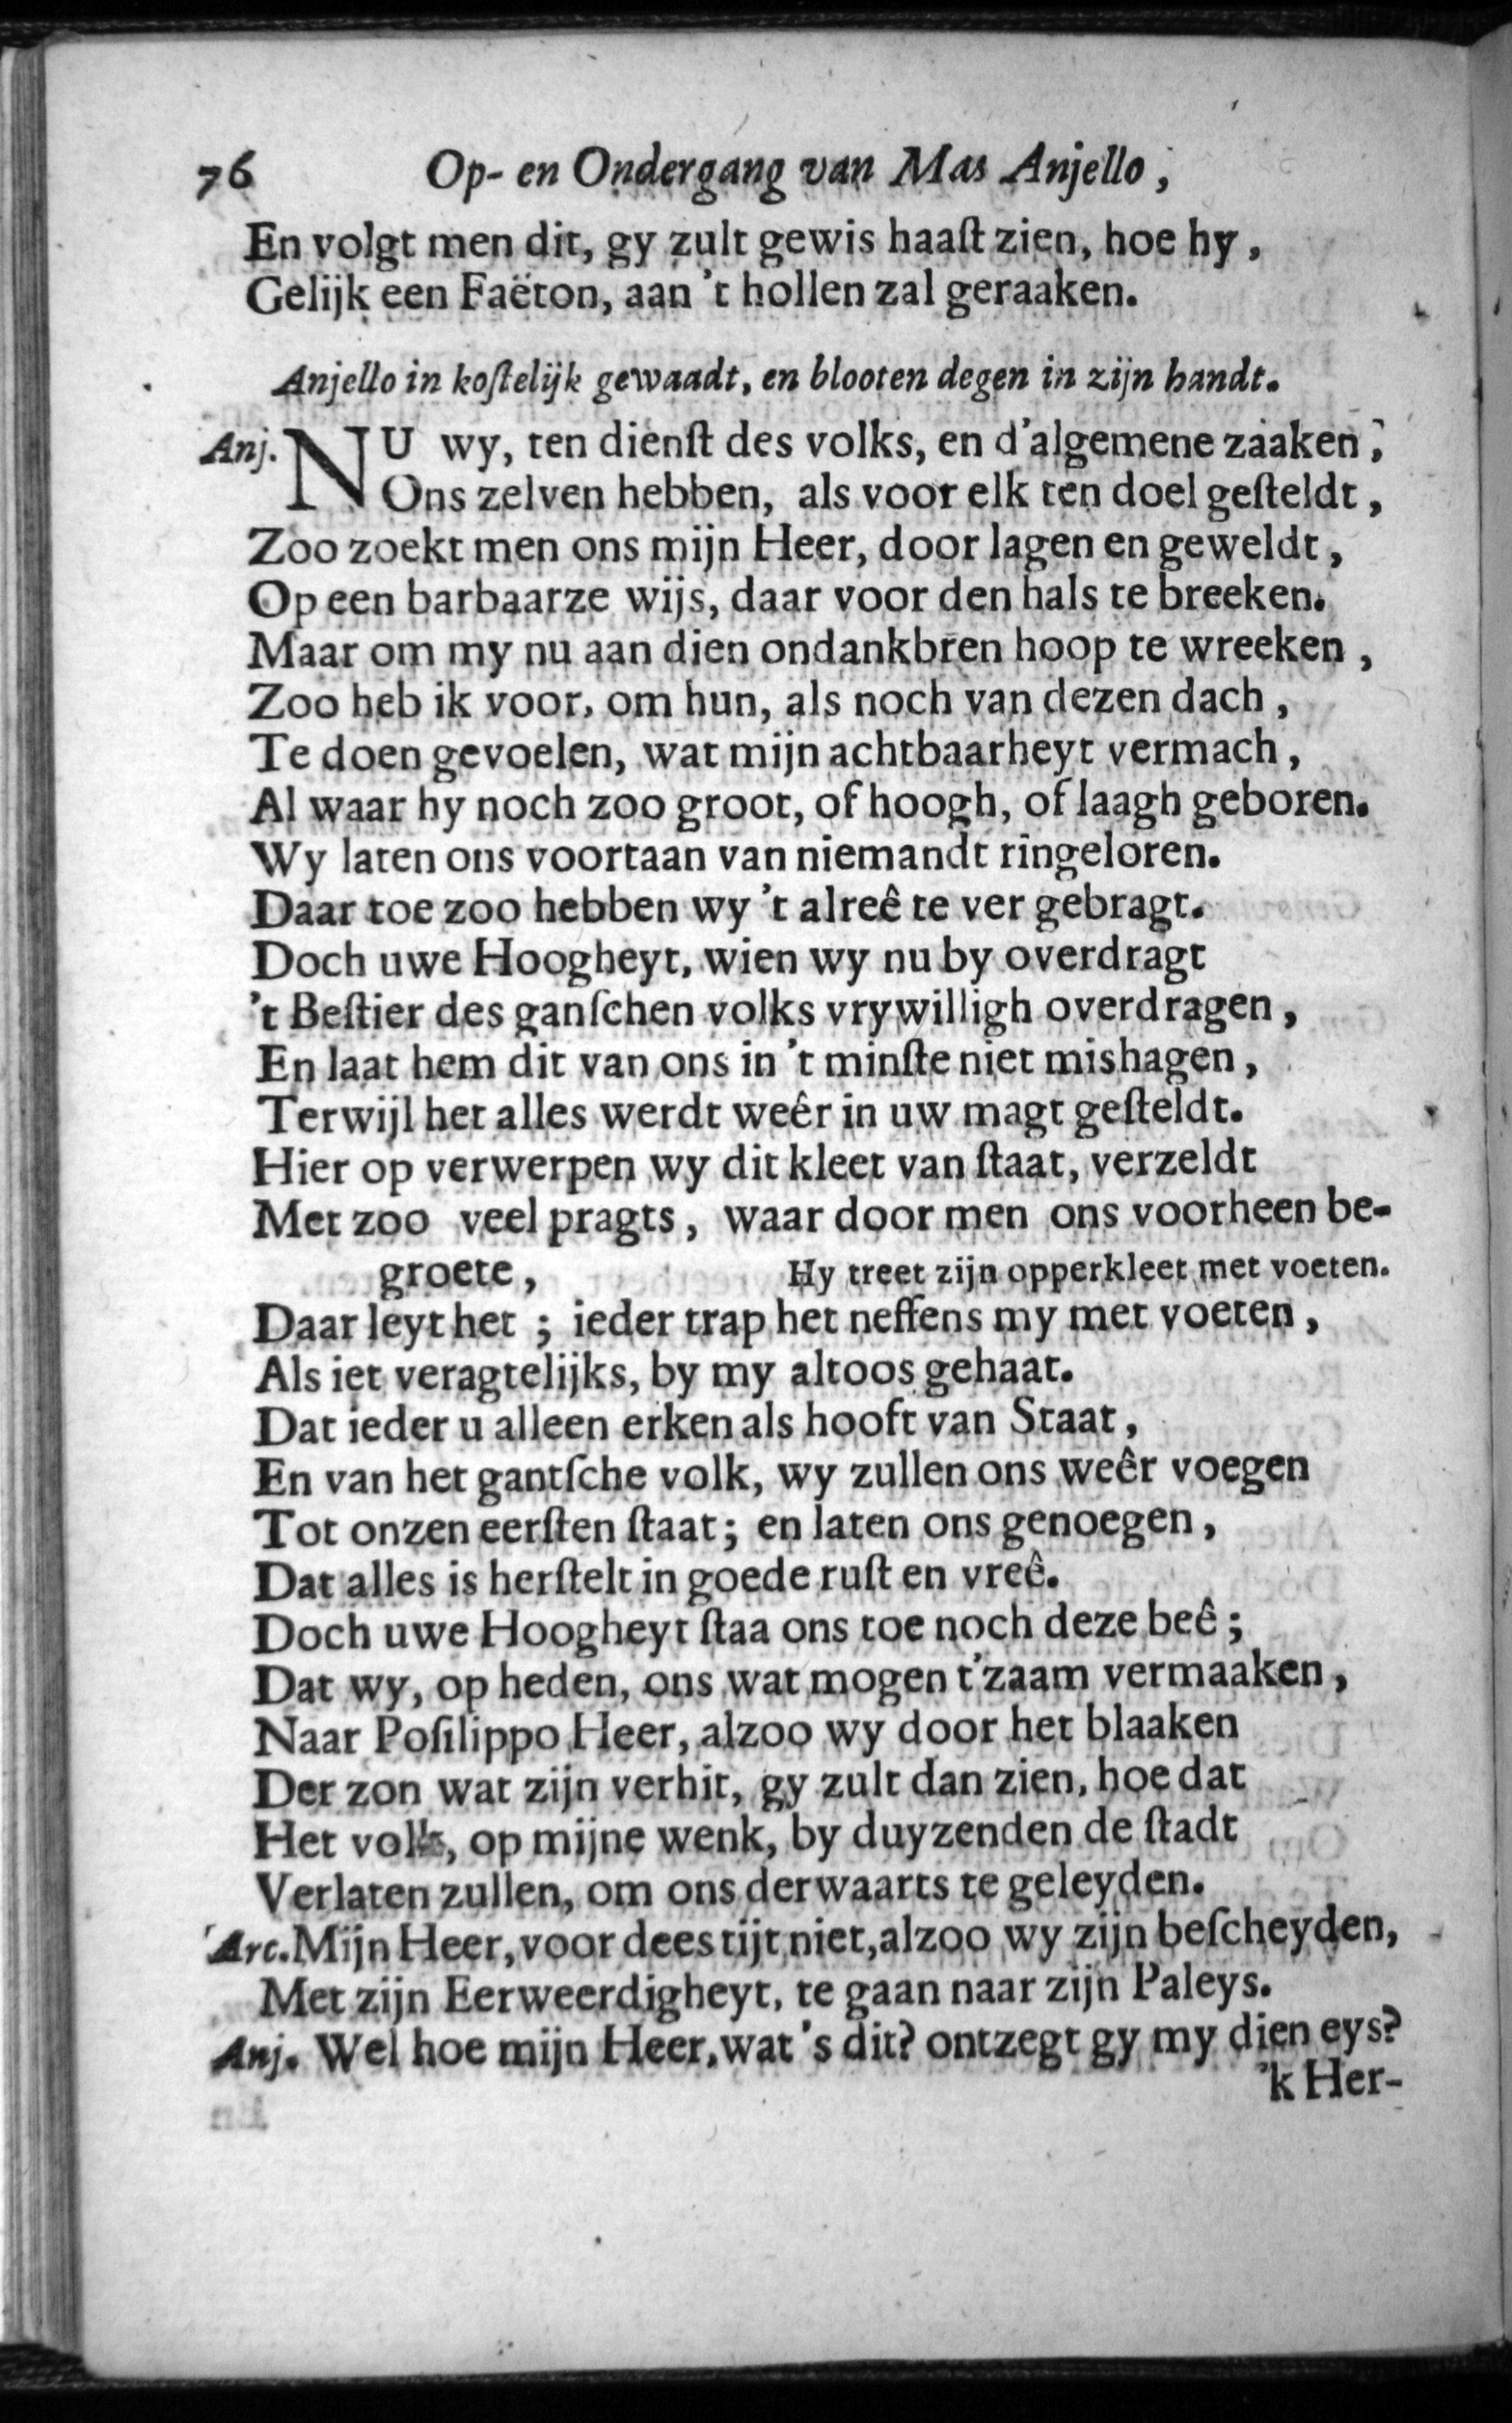 76 Op- en Ondergang van Mas Anjello,
En volgt men dit, gy zult gewis haaſt zien, hoe hy,
Gelijk een Faëton, aan 't hollen zal geraaken.
Anjello in koſtelijk gewaadt, en blooten degen in zijn handt.
Anj. NU wy, ten dienſt des volks, en d'algemene zaaken,
Ons zelven hebben, als voor elk ten doel geſteldt,
Zoo zoekt men ons mijn Heer, door lagen en geweldt,
Op een barbaarze wijs, daar voor den hals te breeken.
Maar om my nu aan dien ondankbren hoop te wreeken,
Zoo heb ik voor, om hun, als noch van dezen dach,
Te doen gevoelen, wat mijn achtbaarheyt vermach,
Al waar hy noch zoo groot, of hoogh, of laagh geboren.
Wy laten ons voortaan van niemandt ringeloren.
Daar toe zoo hebben wy 't alreê te ver gebragt.
Doch uwe Hoogheyt, wien wy nu by overdragt
't Beſtier des ganſchen volks vrywilligh overdragen,
En laat hem dit van ons in 't minſte niet mishagen,
Terwijl het alles werdt weêr in uw magt geſteldt.
Hier op verwerpen wy dit kleet van ſtaat, verzeldt
Met zoo veel pragts, waar door men ons voorheen be-
groete, Hy treet zijn opperkleet met voeten.
Daar leyt het; ieder trap het neffens my met voeten,
Als iet veragtelijks, by my altoos gehaat.
Dat ieder u alleen erken als hooft van Staat,
En van het gantſche volk, wy zullen ons weêr voegen
Tot onzen eerſten ſtaat; en laten ons genoegen,
Dat alles is herſtelt in goede ruſt en vreê.
Doch uwe Hoogheyt ſtaa ons toe noch deze beê;
Dat wy, op heden, ons wat mogen t'zaam vermaaken,
Naar Poſilippo Heer, alzoo wy door het blaaken
Der zon wat zijn verhit, gy zult dan zien, hoe dat
Het volk, op mijne wenk, by duyzenden de ſtadt
Verlaten zullen, om ons derwaarts te geleyden.
Arc. Mijn Heer, voor dees tijt niet, alzoo wy zijn beſcheyden,
Met zijn Eerweerdigheyt, te gaan naar zijn Paleys.
Anj. Wel hoe mijn Heer, wat 's dit? ontzegt gy my dien eys?
'k Her-